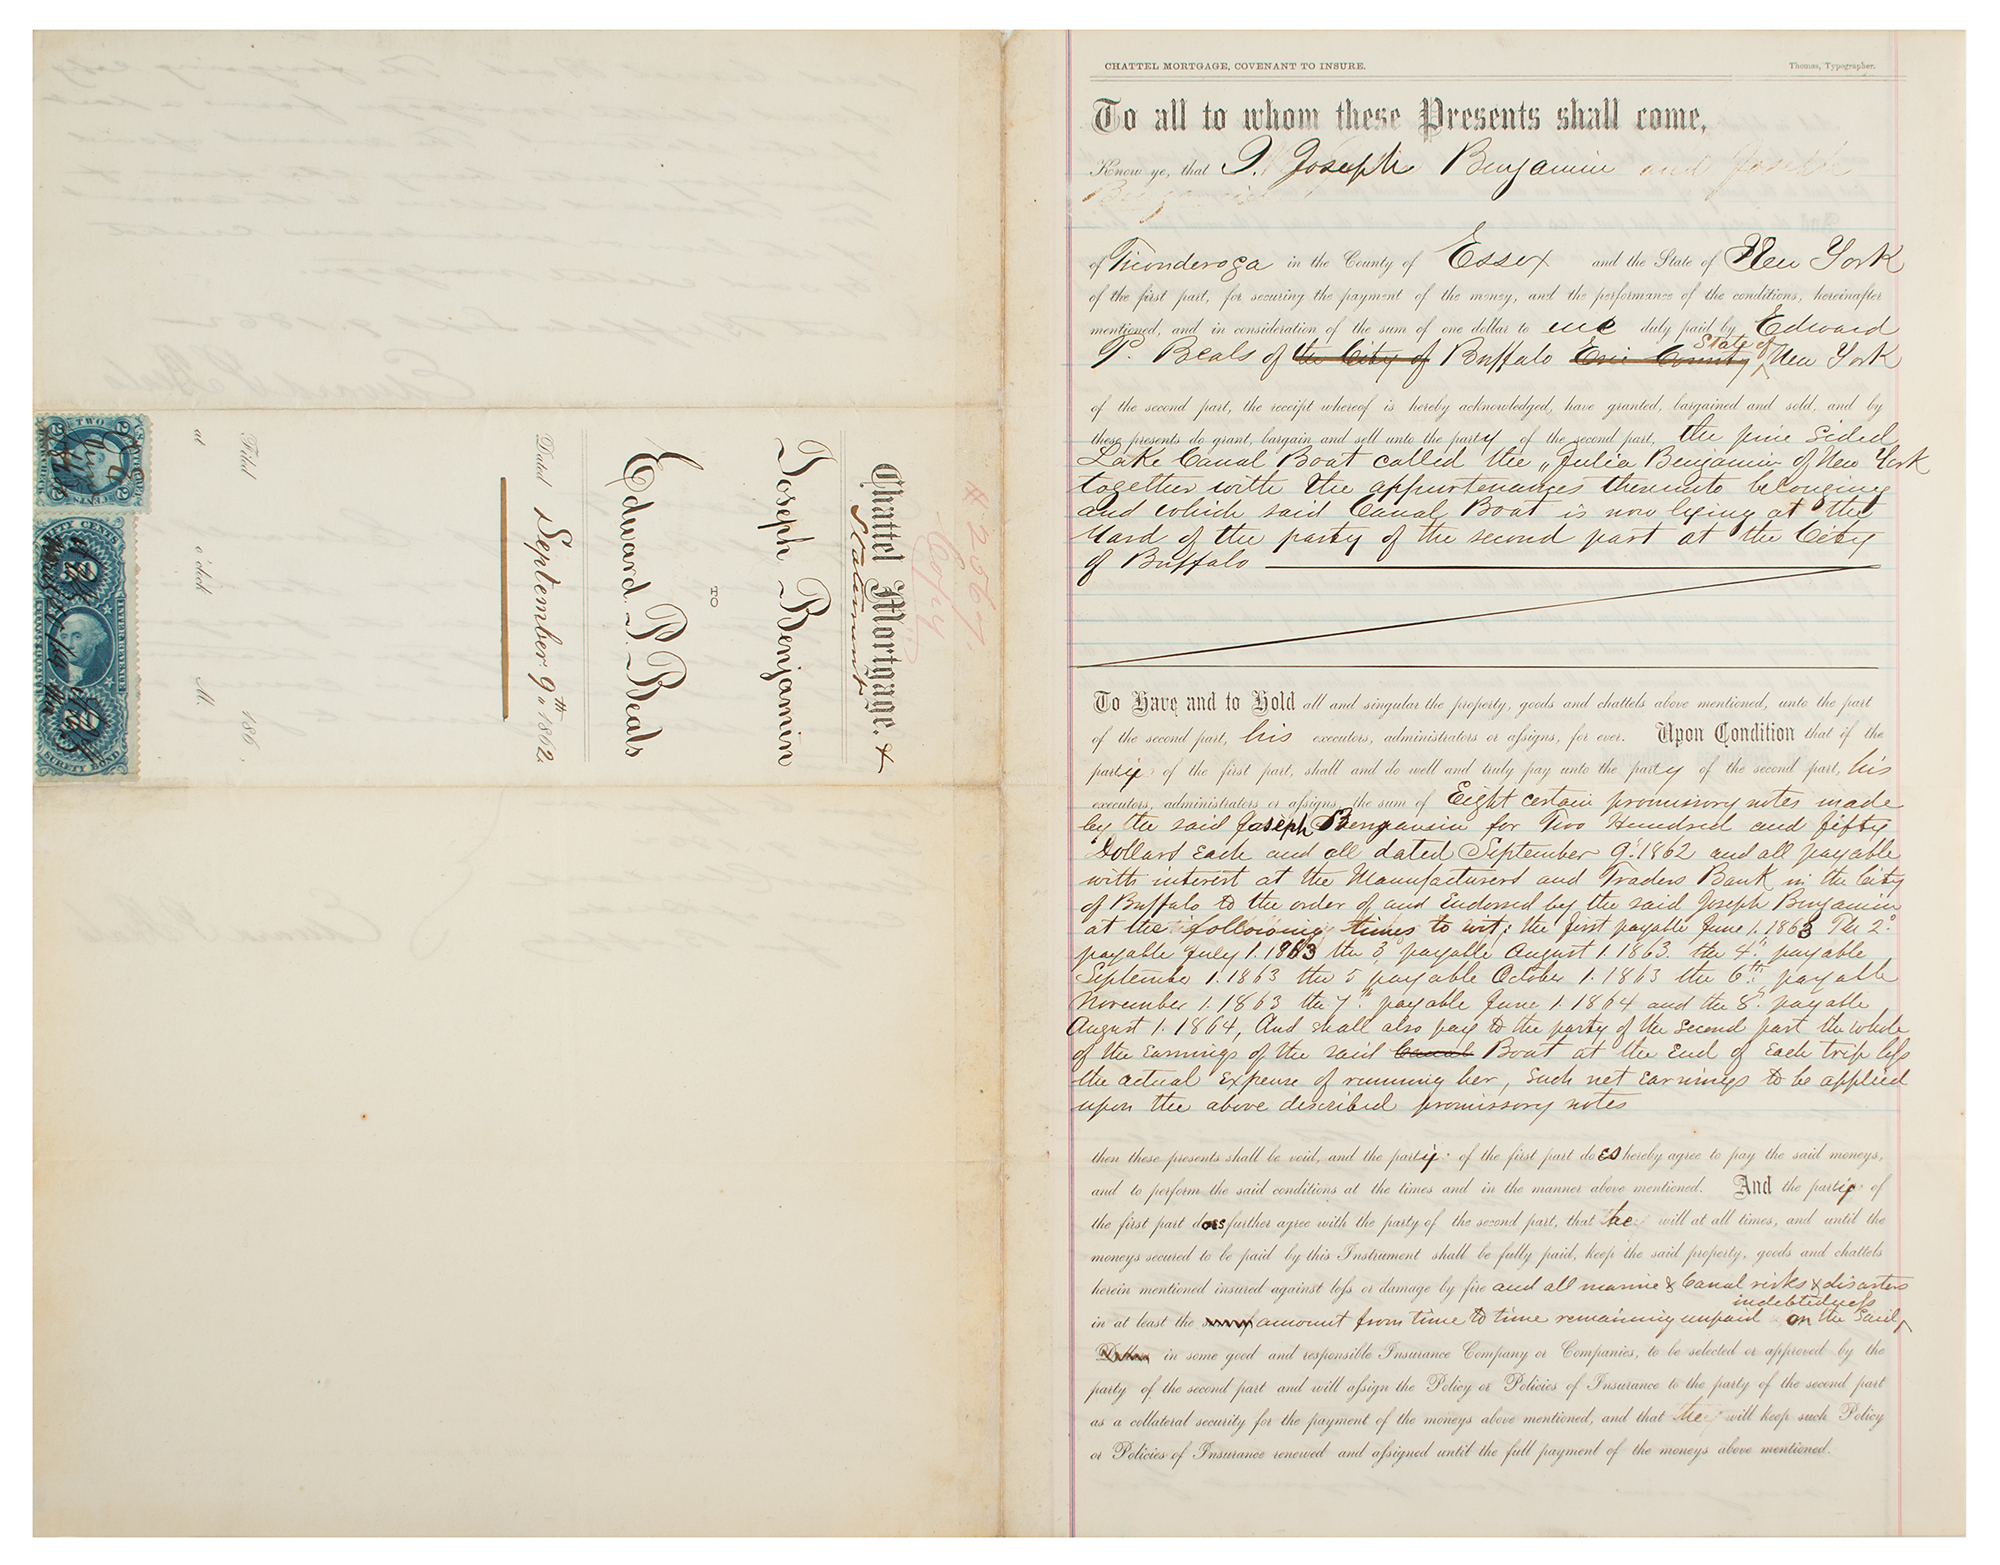 CHATTEL MORTGAGE, COVENANT TO INSURE.
Thomas, Typographer.
To all to whom these Presents shall come,
Know ye, that I, Joseph Benjamin and Joseph
Benjamin
of Ticonderoga in the County of Essex and the State of New York
of the first part, for securing the payment of the money, and the performance of the conditions, hereinafter
mentioned, and in consideration of the sum of one dollar to me duly paid by Edward
State of
P. Beals of the City of Buffalo Erie County New York
of the second part, the receipt whereof is hereby acknowledged, have granted, bargained and sold, and by
these presents do grant, bargain and sell unto the party of the second part, the pine sided
Lake Canal Boat called the „Julia Benjamin of New York
together with the appurtenances thereunto belonging
and which said Canal Boat is now lying at the
Yard of the party of the second part at the City
of Buffalo
To Have and to Hold all and singular the property, goods and chattels above mentioned, unto the part
of the second part, his executors, administrators or assigns, for ever. Upon Condition that if the
party of the first part, shall and do well and truly pay unto the party of the second part, his
executors, administrators or assigns, the sum of Eight certain promissory notes made
by the said Joseph Benjamin for Two Hundred and fifty
Dollars Each and all dated September 9. 1862 and all payable
with interest at the Manufacturers and Traders Bank in the City
of Buffalo to the order of and Endorsed by the said Joseph Benjamin
at the following times to wit; the first payable June 1. 1863 The 2d
payable July 1. 1863 the 3d payable August 1. 1863. the 4th payable
September 1. 1863 the 5 payable October 1. 1863 the 6th payable
November 1. 1863 the 7th payable June 1. 1864 and the 8th payable
August 1. 1864, And shall also pay to the party of the second part the whole
of the Earnings of the said Canal Boat at the End of Each trip less
the actual Expense of running her, Such net Earnings to be applied
upon the above described promissory notes
then these presents shall be void, and the party of the first part does hereby agree to pay the said moneys,
and to perform the said conditions at the times and in the manner above mentioned. And the party of
the first part does further agree with the party of the second part, that he will at all times, and until the
moneys secured to be paid by this Instrument shall be fully paid, keep the said property, goods and chattels
herein mentioned insured against loss or damage by fire and all marine & Canal risks & disasters
indebtedness
in at least the amount from time to time remaining unpaid on the said
in some good and responsible Insurance Company or Companies, to be selected or approved by the
party of the second part and will assign the Policy or Policies of Insurance to the party of the second part
as a collateral security for the payment of the moneys above mentioned, and that he will keep such Policy
or Policies of Insurance renewed and assigned until the full payment of the moneys above mentioned.
Copy
Chattel Mortgage. &
Statement
Joseph Benjamin
TO
Edward P. Beals
Dated September 9th 1862
Filed 186 .
at o'clock M.
TWO
FIFTY CENTS
INTER. REVENUE
UNITED STATES
SURETY BOND